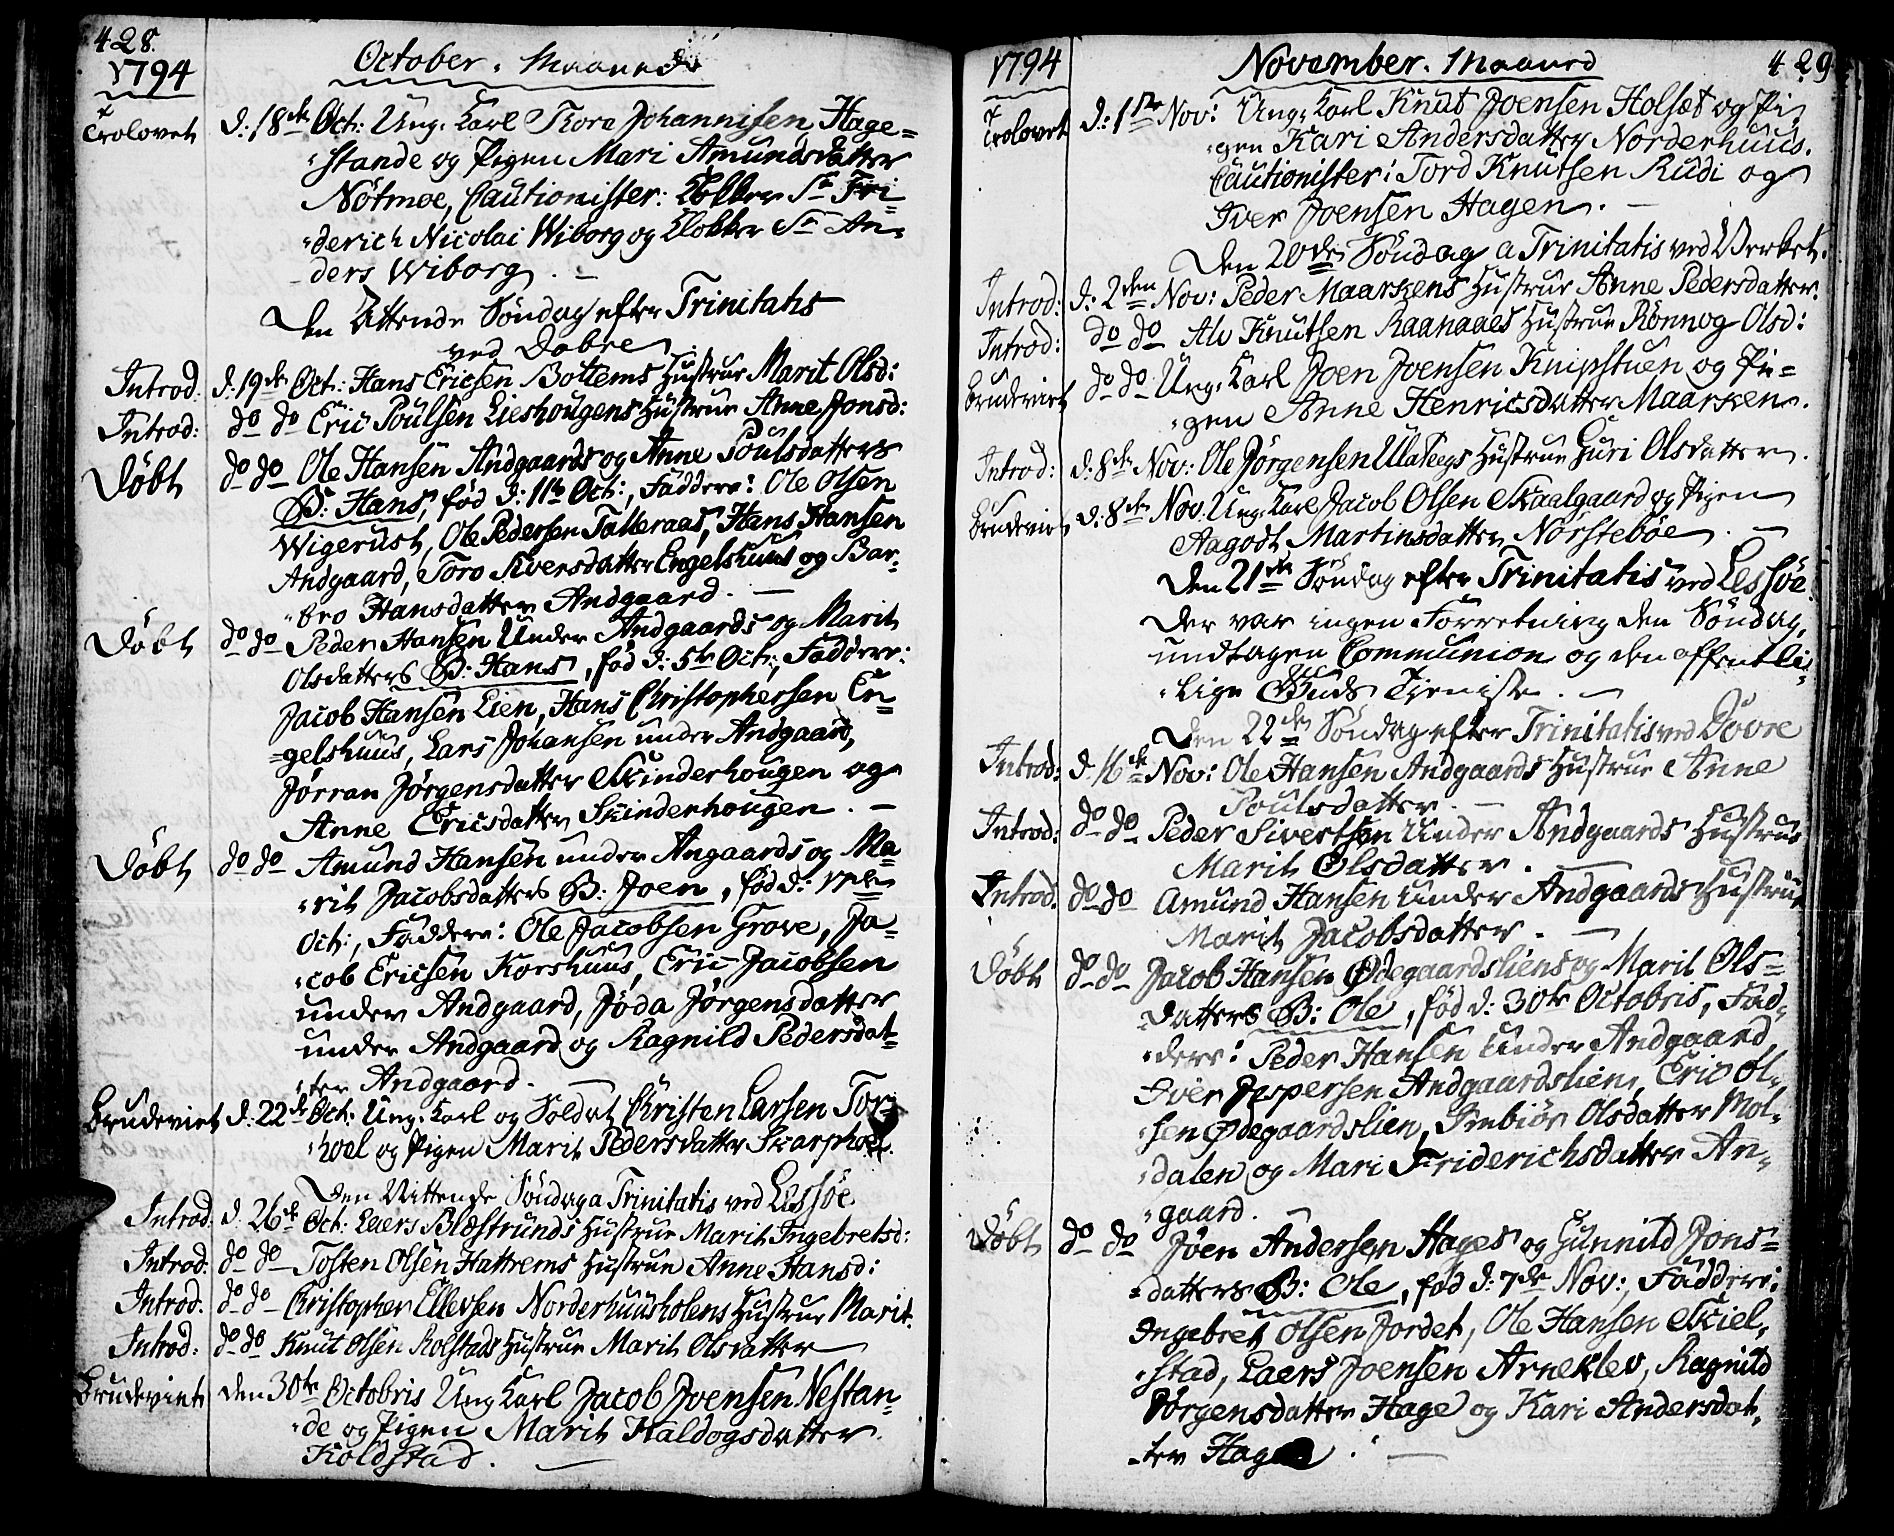 428.
1794 October. Maaned
Trolovet d: 18de Oct: Ung. Karl Tore Johannisen Hage=
stande og Pigen Mari Amundsdatter
Nótmoe, Cautionister: Klokker Sr Fri=
derich Nicolai Wiborg og Klokker Sr An=
ders Wiborg. —
Den Attende Söndag efter Trinitatis
ved Dobre
Introd. d: 19de Oct: Hans Ericsen Bottems Hustrue Marit Olsd:
Introd: do do Eric Poulsen Lieshougens Hustrue Anne Jonsd:
Döbt do do Ole Hansen Andgaards og Anne Poulsdatters
B: Hans, föd d: 11te Oct:, Faddere: Ole Olsen
Wigerust, Ole Pedersen Talleraas, Hans Hansen
Andgaard, Toro Siversdatter Engelshuus og Bar=
bro Hansdatter Andgaard. —
Döbt do do Peder Hansen Under Andgaards og Marit
Olsdatters B: Hans, föd d: 5te Oct:, Faddere:
Jacob Hansen Lien, Hans Christophersen En=
gelshuus, Lars Johansen under Andgaard,
Jörran Jörgensdatter Skinderhougen og
Anne Ericsdatter Skinderhougen. —
Döbt do do Amund Hansen under Angaards og Ma=
rit Jacobsdatters B: Joen, föd d: 17de
Oct:, Faddere: Ole Jacobsen Grove, Ja=
cob Ericsen Korshuus, Eric Jacobsen
under Andgaard, Jöda Jörgensdatter
under Andgaard og Ragnild Pedersdat=
ter Andgaard. —
Brudeviet d. 22de Oct: Ung. Karl og Soldat Christen Larsen Tor=
hoel og Pigen Marit Pedersdatter Skarphoel.
Den Nittende Söndag a Trinitatis ved Lessöe
Introd. d. 26de Oct: Laers Blæstrunds Hustrue Marit Ingebretsd:
Introd: do do Tosten Olsen Hattrems Hustrue Anne Hansd:
Introd: do do Christopher Ellevsen Norderhuusholens Hustrue Marit
Introd: do do Knut Olsen Rolstads Hustrue Marit Olsdatter
Brudeviet den 30te Octobris Ung Karl Jacob Joensen Nestan=
de og Pigen Marit Haldogsdatter
Koldstad. —
1794 November. Maaned 429
Trolovet d: 1ste Nov: Ung. Karl Knut Joensen Holset og Pi=
gen Kari Andersdatter Norderhuus.
Cautionister: Tord Knutsen Rudi og
Iver Joensen Hagen. —
Den 20de Söndag a Trinitatis ved Verket.
Introd: d: 2den Nov: Peder Maarskens Hustrue Anne Pedersdatter.
Introd: do do Alv Knutsen Raanaaes Hustrue Rönnog Olsd:
Brudeviet do do Ung. Karl Joen Joensen Knipstuen og Pi=
gen Anne Henricsdatter Maarsken.
Introd: d: 8de Nov: Ole Jörgensen Hustrue Guri Olsdatter.
Brudeviet d: 8de Nov. Ung. Karl Jacob Olsen Skaalgaard og Pigen
Aagodt Martinsdatter Norstebôe. —
Den 21de Söndag efter Trinitatis ved Lessöe.
Der var ingen Forretning den Söndag,
undtagen Communion og den offentli=
lige Guds Tjeniste. —
Den 22de Söndag efter Trinitatis ved Dovre
Introd: d. 16de Nov: Ole Hansen Andgaards Hustrue Anne
Poulsdatter. —
Introd: do do Peder Sivertsen Under Andgaards Hustrue
Marit Olsdatter. —
Introd. do do Amund Hansen Under Andgaards Hustrue
Marit Jacobsdatter. —
Döbt do do Jacob Hansen Ødegaardsliens og Marit Ols=
datters B: Ole, föd d: 30te Octobris, Fad=
dere: Peder Hansen Under Andgaard,
Iver Jespersen Andgaardslien, Eric Ol=
sen Ødegaardslien, Imbiör Olsdatter Mol=
dalen og Mari Friderichsdatter An=
gaard.
Döbt do do Jöen Andersen Hages og Gunnild Jons=
datters B: Ole, föd d: 7de Nov:, Faddere:
Ingebret Olsen Jordet, Ole Hansen Skiel=
stad, Laers Joensen Arneklev, Ragnild
Jörgensdatter Hage og Kari Andersdat=
ter Hage. —